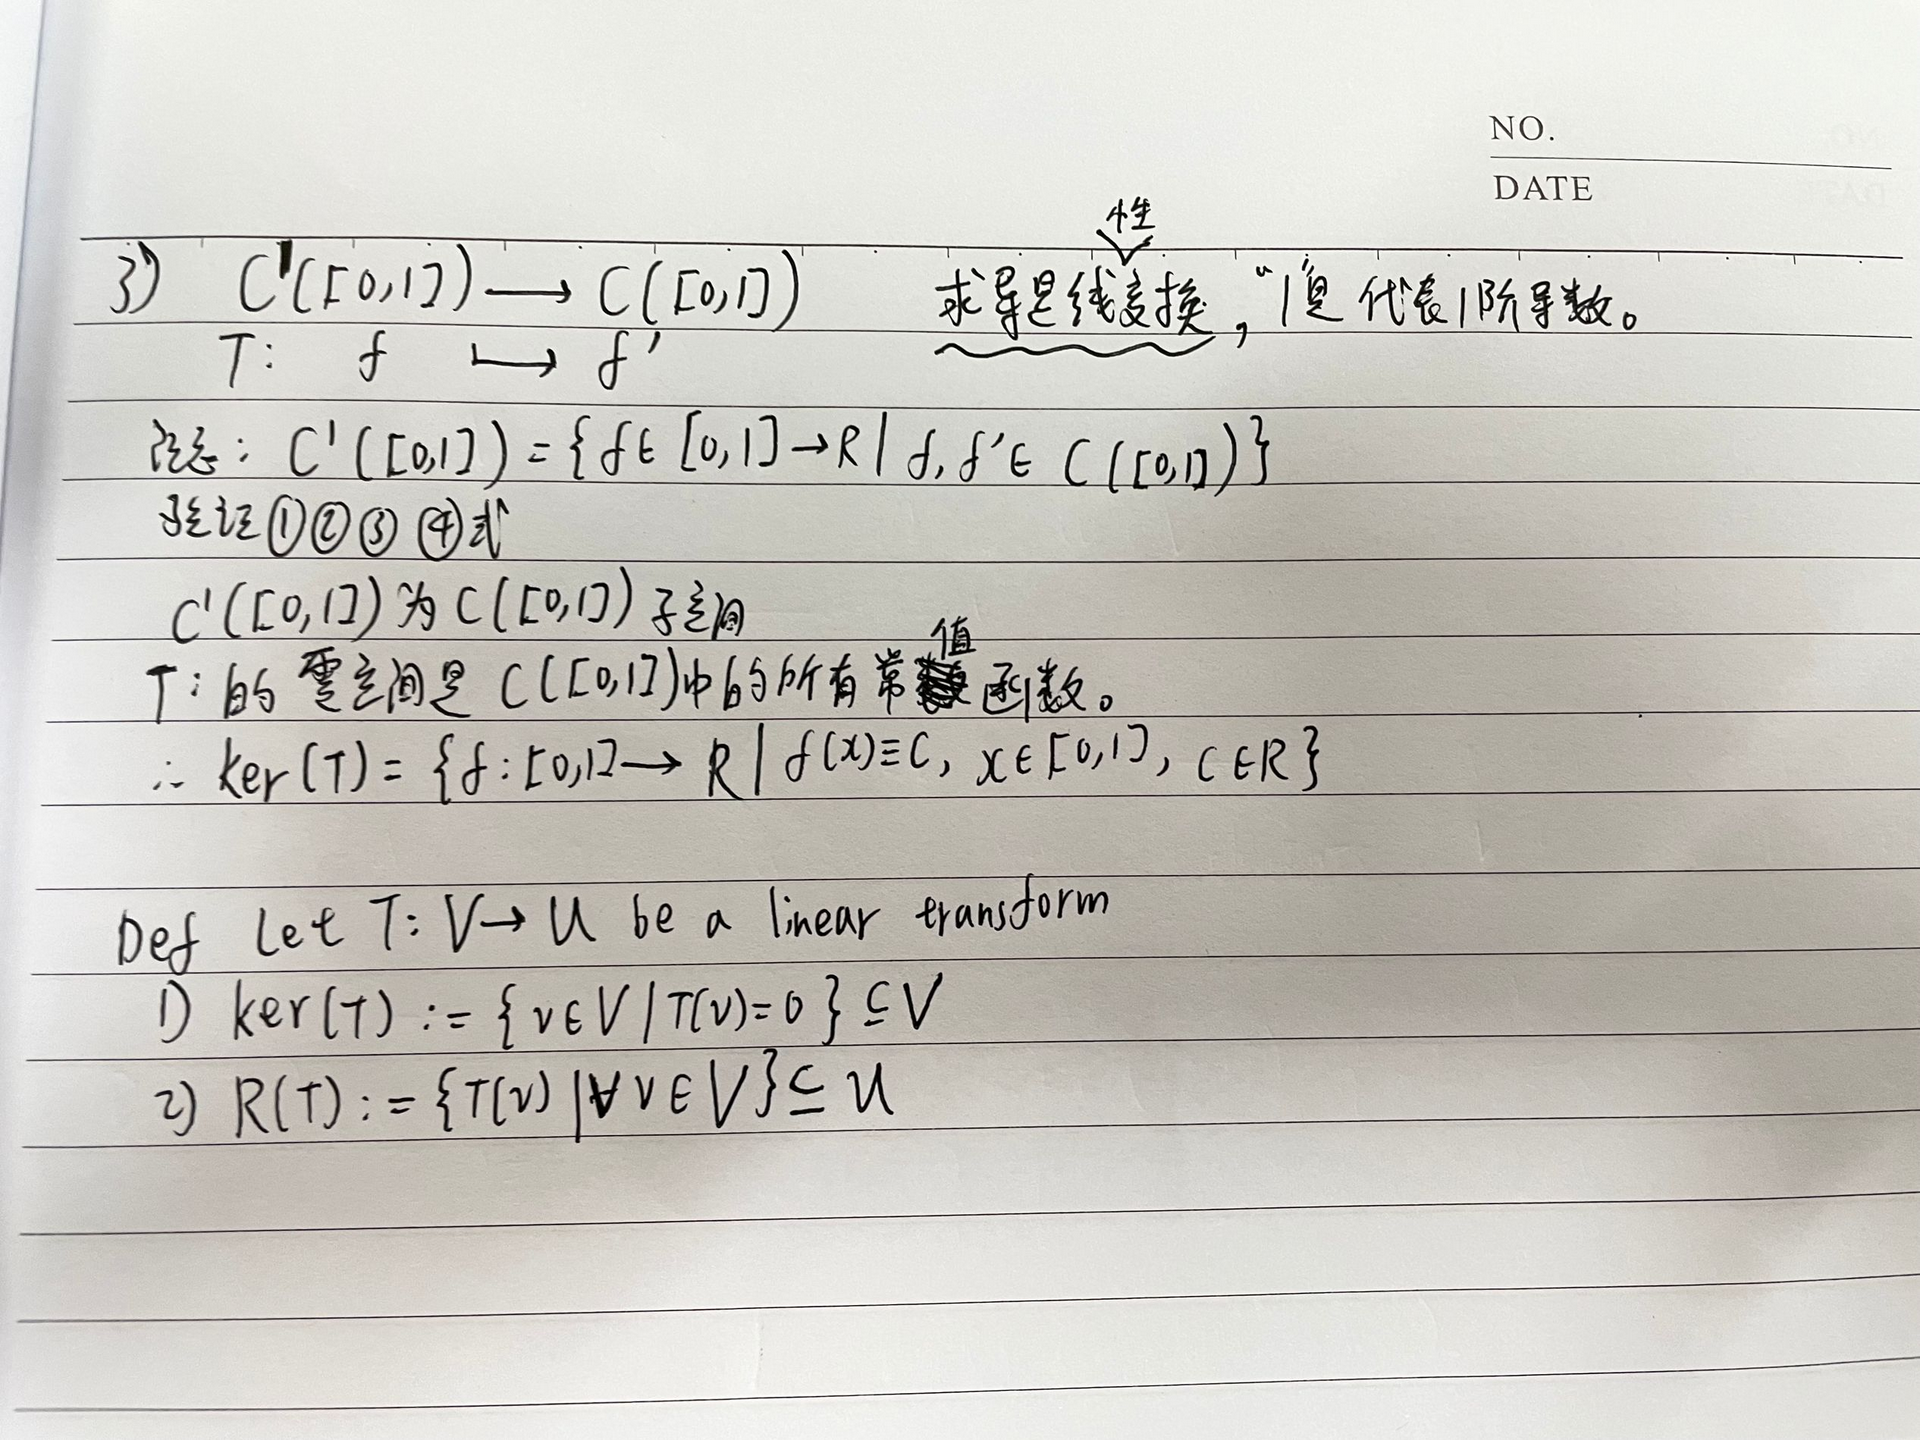 NO.
DATE
3) C¹([0,1]) ⟶ C([0,1]) 求导是线性变换, "1"是代表1阶导数。
T: f ⟼ f′
注意: C¹([0,1]) = {f∈ [0,1]→R | f, f′∈ C([0,1])}
验证①②③④式
C¹([0,1])为C([0,1])子空间
T: 的零空间是C([0,1])中的所有常值函数。
∴ ker(T) = {f:[0,1]⟶ R | f(x)≡C, x∈[0,1], C∈R}
Def Let T: V→ U be a linear transform
1) ker(T) := {v∈V | T(v)=0} ⊆ V
2) R(T) := {T(v) | ∀ v∈V} ⊆ U